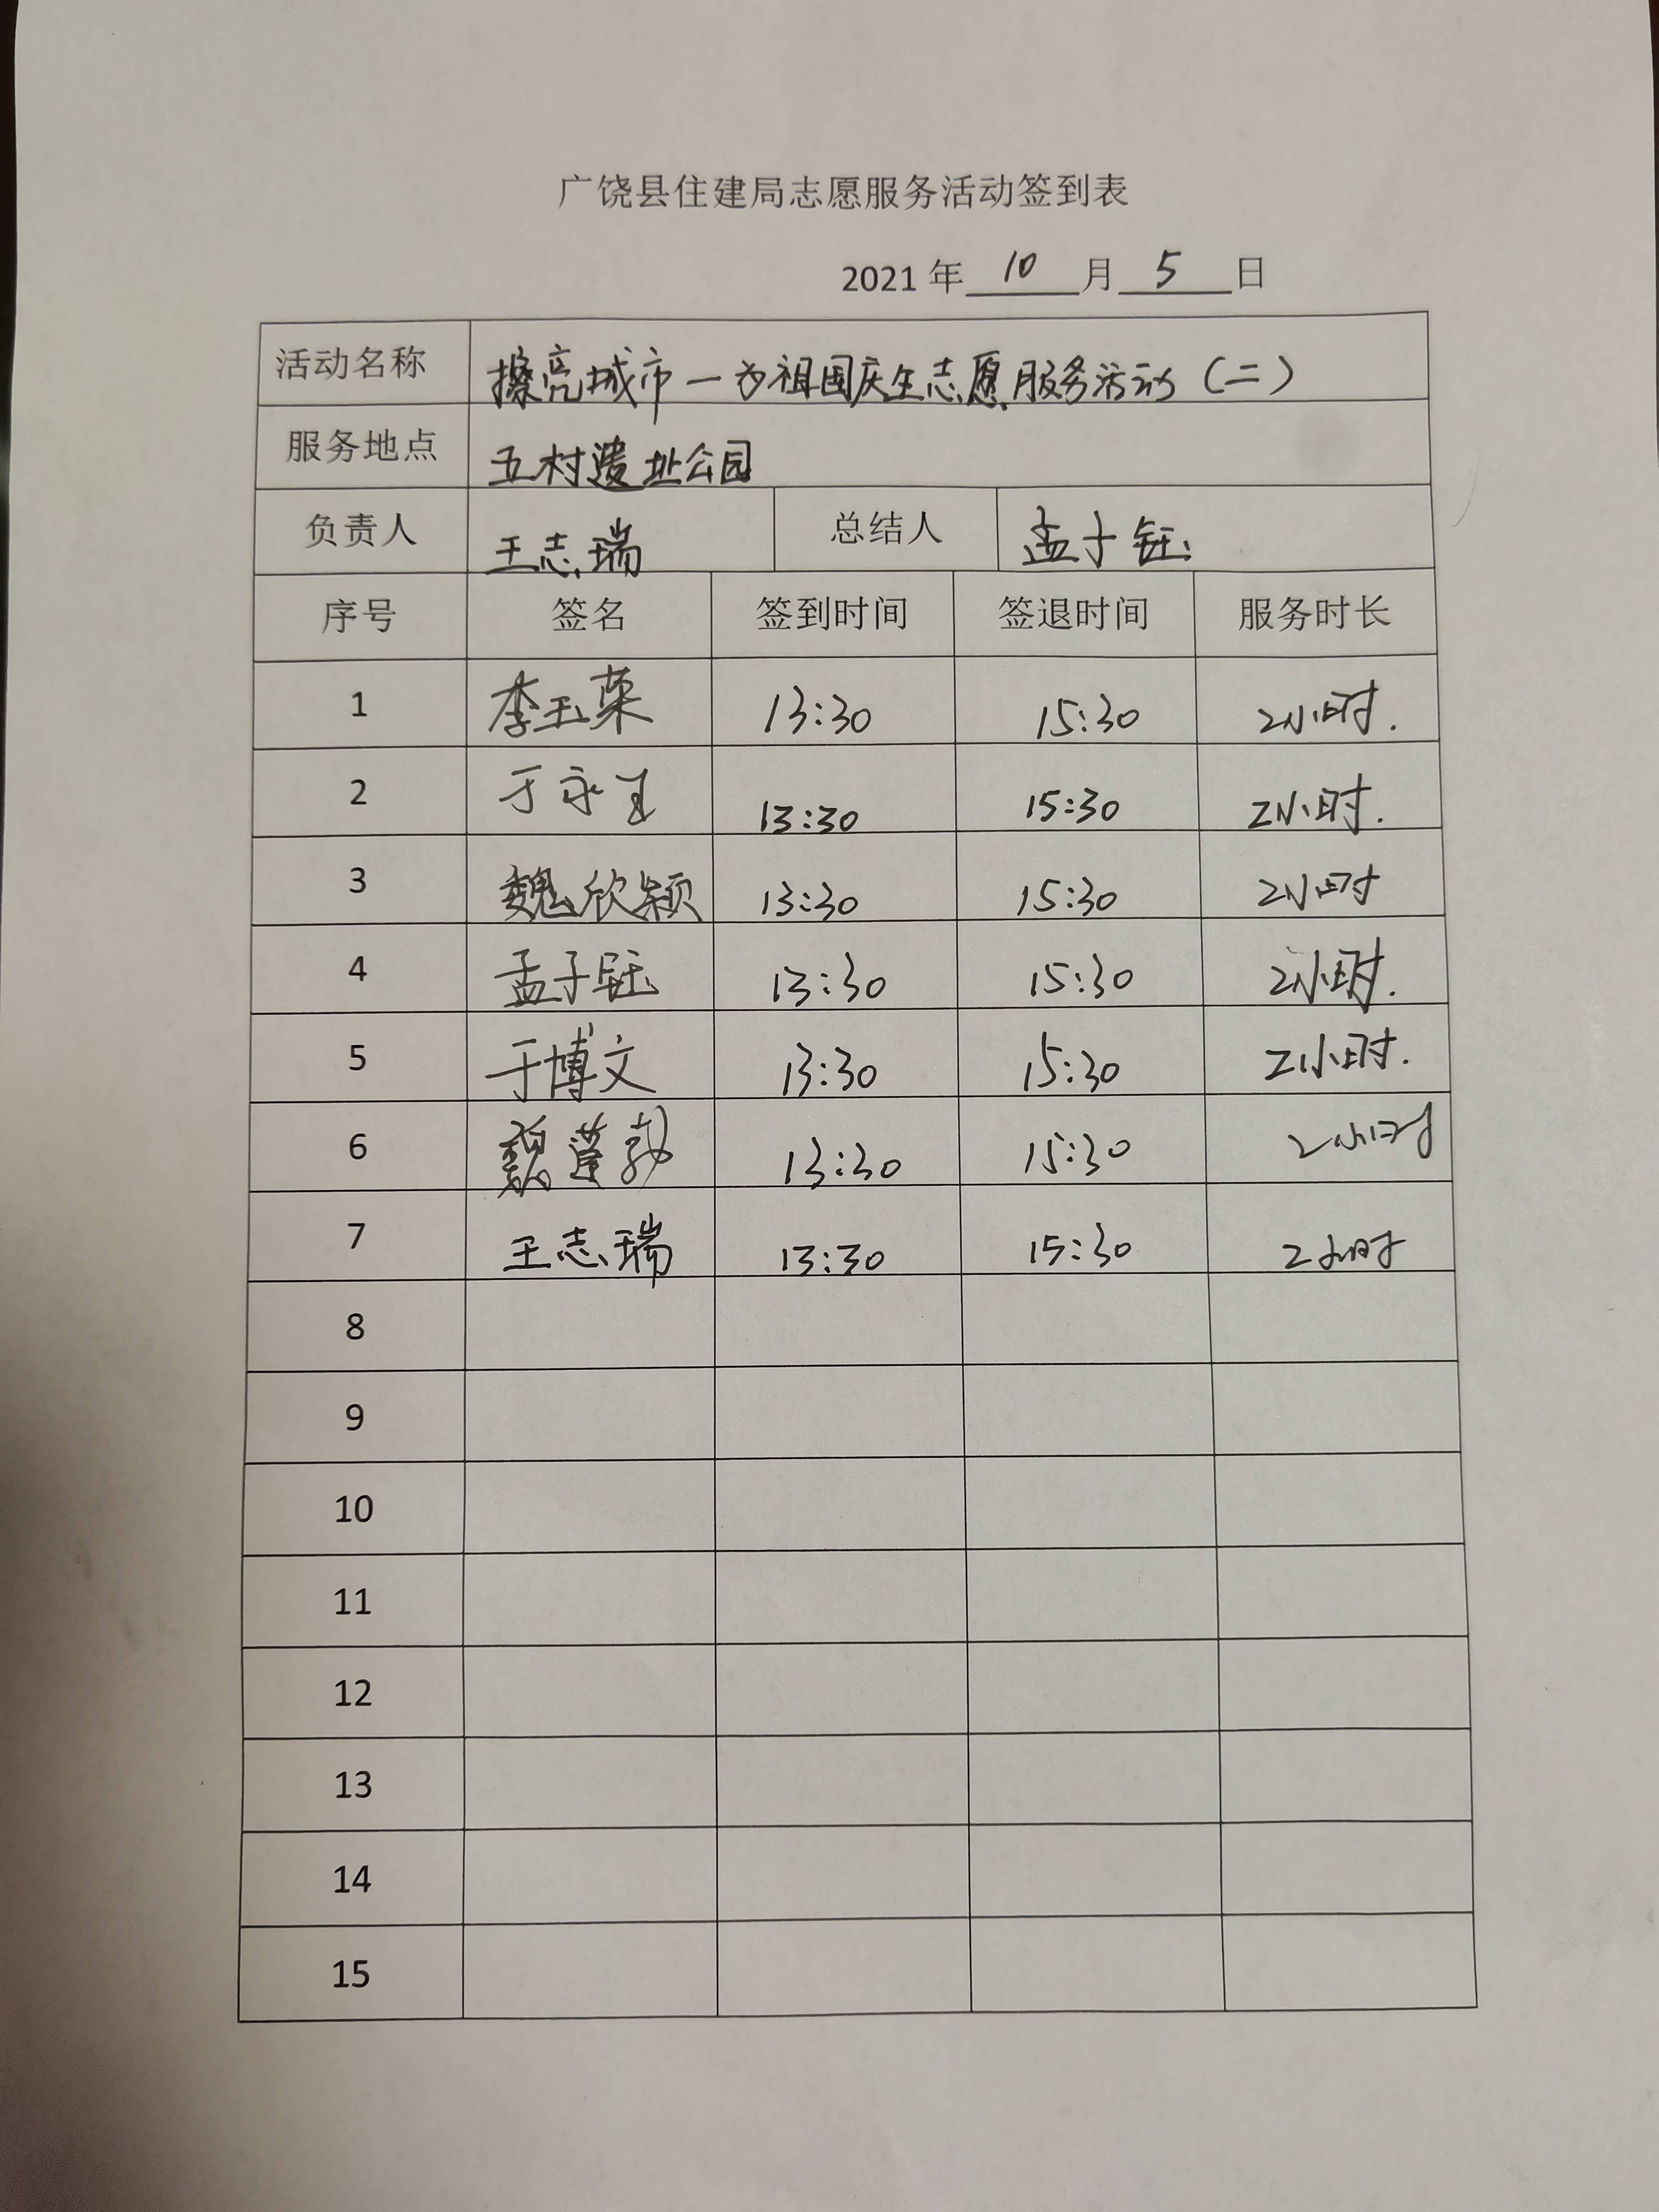 广饶县住建局志愿服务活动签到表
2021 年 10 月 5 日
活动名称 擦亮城市一为祖国庆生志愿服务活动（二）
服务地点 五村遗址公园
负责人 王志瑞 总结人 孟子钰
序号 签名 签到时间 签退时间 服务时长
1 李玉荣 13:30 15:30 2小时.
2 于永 13:30 15:30 2小时.
3 魏欣颖 13:30 15:30 2小时
4 孟子钰 13:30 15:30 2小时.
5 于博文 13:30 15:30 2小时.
6 魏蓬勃 13:30 15:30 2小时
7 王志瑞 13:30 15:30 2小时
8
9
10
11
12
13
14
15